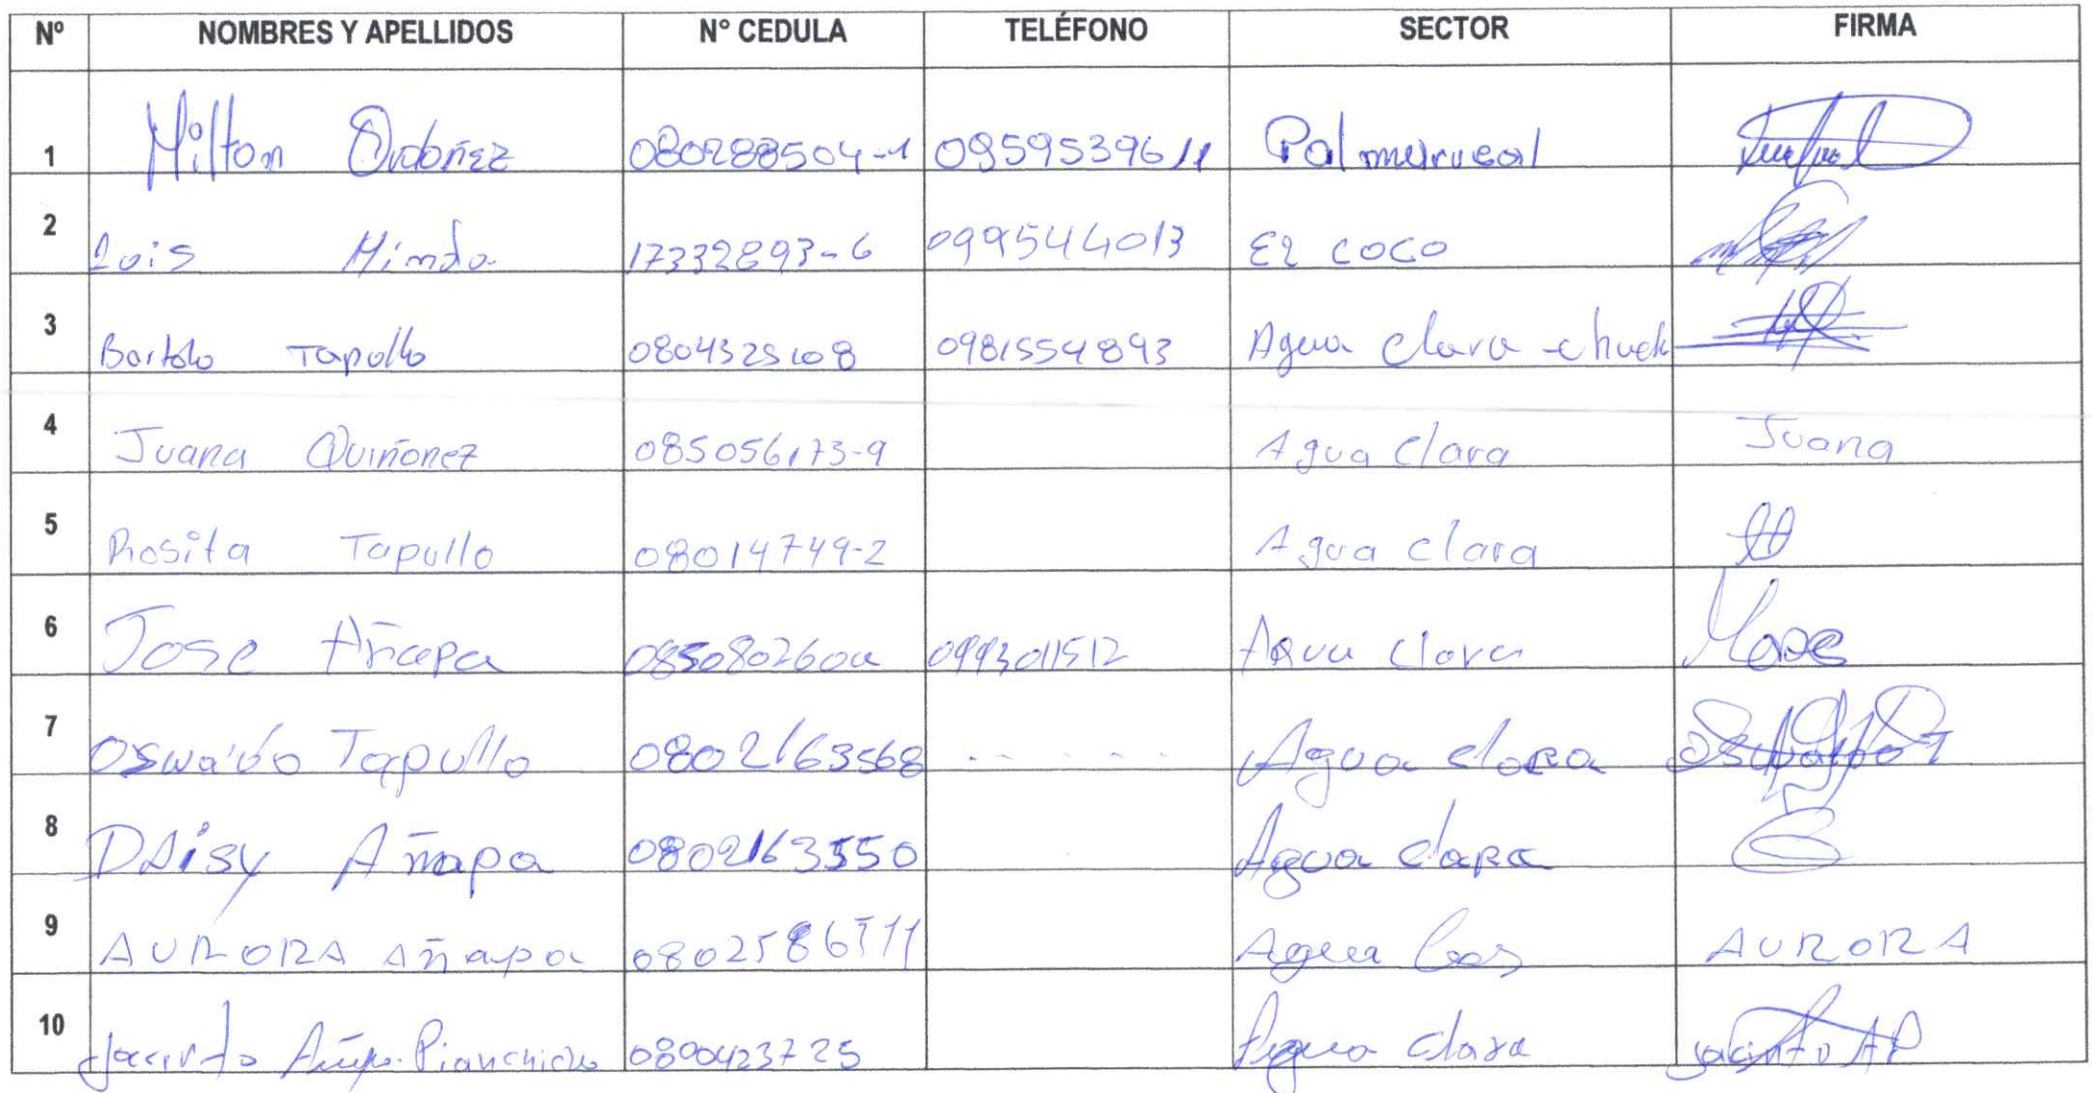 Nº NOMBRES Y APELLIDOS Nº CEDULA TELÉFONO SECTOR FIRMA
1 Milton Ordoñez 080288504-1 0959539611 Palmarreal
2 Lois Minda 17332893-6 0995444013 El coco
3 Bartolo Tapullo 0981554893 Agua Clara
4 Juana Quiñonez 085056173-9 Agua Clara Juana
5 Rosita Tapullo 08014749-2 Agua Clara
6 Jose Añapa 0993011512 Agua Clara
7 Oswaldo Tapullo 0802163568 Agua clara
8 DAisy Añapa 0802163550 Agua clara
9 AURORA Añapa Agua AURORA
10 Jacinto Añapa Pianchiche 0800423725 Agua clara Jacinto AP